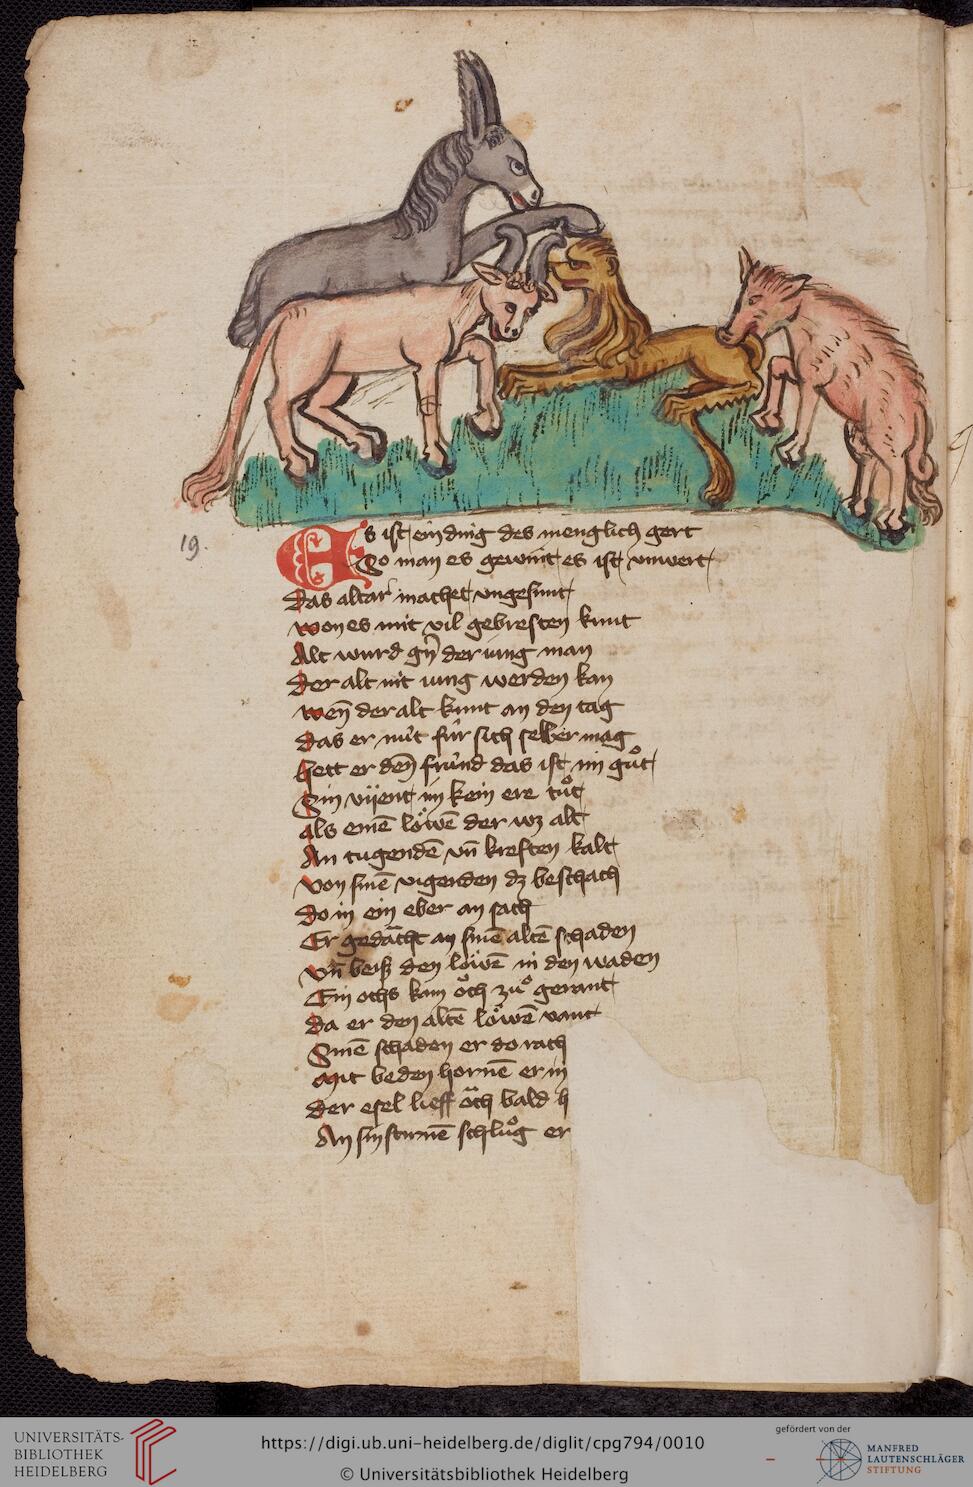 19.
Es ist ein ding des menglich gert
So man es gewint es ist unwert
Das altar machet ungesunt
won es mit vil gebresten kunt
Alt wurd gn̄ der iung man
Der alt nit iung werden kan
wen̄ der alt kunt an den tag
Das er nüt für sich selber mag
hett er den̄ fründ das ist im guͦt
Sin vijent im kein ere tuͦt
als einē löwē der wz alt
An tugendē un̄ kreften kalt
von sinē vigenden dz beschach
Do in ein eber an sach
Er gedācht an sinē altē schaden
un̄ beiss den löwē in den waden
Ein ochs kam och zuͦ gerant
Da er den altē löwē vant
Sinē schaden er do rach
mit beden hornē er in
Der esel lieff och bald h
An sin stirnē schluͦg er
UNIVERSITÄTS-
BIBLIOTHEK
HEIDELBERG
https://digi.ub.uni-heidelberg.de/diglit/cpg794/0010
© Universitätsbibliothek Heidelberg
gefördert von der
MANFRED
LAUTENSCHLÄGER
STIFTUNG